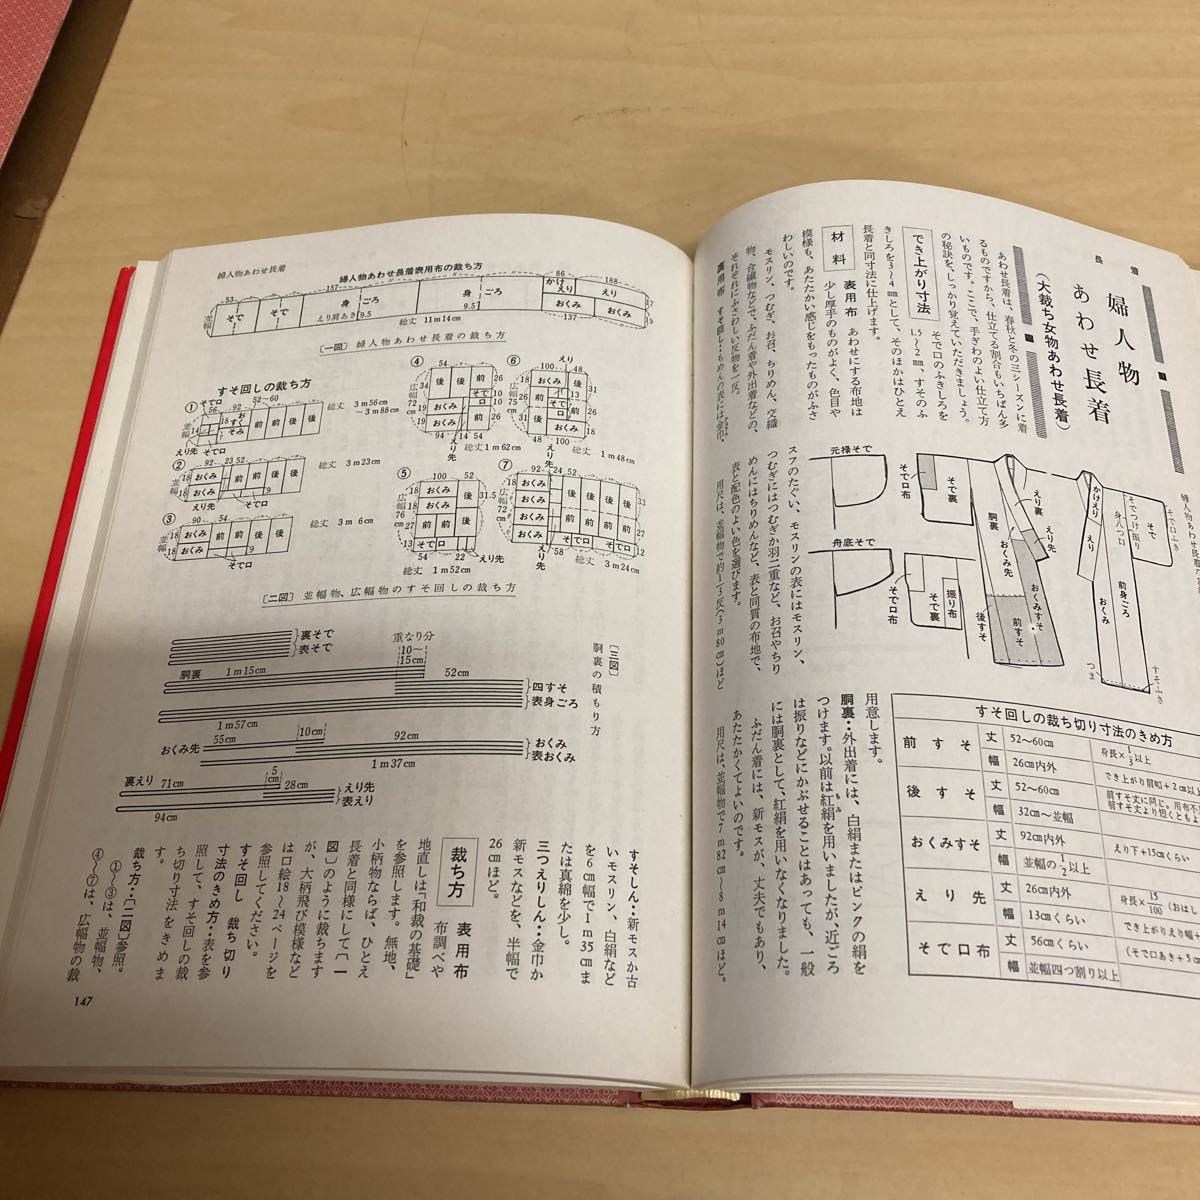 長着
婦人物
あわせ長着
(大裁ち女物あわせ長着)
あわせ長着は、春秋と冬の三シーズンに着
るものですから、仕立てる割合もいちばん多
いものです。ここで、手ぎわのよい仕立て方
の秘訣を、しっかり覚えていただきましょう。
でき上がり寸法
そで口のふきしろを
1.5〜2㎜、すそのふ
きしろを3〜4㎜として、そのほかはひとえ
長着と同寸法に仕上げます。
材料
表用布 あわせにする布地は
少し厚手のものがよく、色目や
模様も、あたたかい感じをもったものがふさ
わしいのです。
モスリン、つむぎ、お召、ちりめん、交織
物、合繊物などで、ふだん着や外出着などの、
それぞれにふさわしい反物を一反。
裏用布 すそ回し‥もめんの表には金巾、
スフのたぐい、モスリンの表にはモスリン、
つむぎにはつむぎか羽二重など、お召やちり
めんにはちりめんなど、表と同質の布地で、
表と配色のよい色を選びます。
用尺は、並幅物で約1/3反(3m80㎝)ほど
用意します。
胴裏‥外出着には、白絹またはピンクの絹を
つけます。以前は紅絹を用いましたが、近ごろ
は振りなどにかぶせることはあっても、一般
には胴裏として、紅絹を用いなくなりました。
ふだん着には、新モスが、丈夫でもあり、
あたたかくてよいのです。
用尺は、並幅物で7m82㎝〜8m14㎝ほど。
元禄そで
舟底そで
そで口布
そで裏
そで口布
そで裏
振り布
胴裏
えり裏
えり先
おくみ先
おくみすそ
前すそ
後すそ
かけえり
えり
おくみ
つま
そでつけ
振り
身八つ口
そで
そで口
前身ごろ
すそふき
すそ回しの裁ち切り寸法のきめ方
前すそ 丈 52〜60㎝ 身長×1/3以上
幅 26㎝内外 でき上がり前幅+2㎝以上
後すそ 丈 52〜60㎝ 前すそ丈に同じ。用布不
前すそ丈より短くともよ
幅 32㎝〜並幅
おくみすそ 丈 92㎝内外 えり下+15㎝くらい
幅 並幅の1/2以上
えり先 丈 26㎝内外 身長×15/100(おはし
幅 13㎝くらい でき上がりえり幅+
そで口布 丈 56㎝くらい (そで口あき+5㎝
幅 並幅四つ割り以上
婦人物あわせ長着
婦人物あわせ長着表用布の裁ち方
53 157 86 188
並幅
そで そで 身ごろ 身ごろ かけえり えり
おくみ おくみ
えり肩あき 9.5 9.5 137 17 19
総丈 11m14㎝
〔一図〕婦人物あわせ長着の裁ち方
すそ回しの裁ち方
① そで口 56 92 52〜60
並幅 18 おくみ 前 前 後 後
えり先 そで口
総丈 3m56㎝〜3m88㎝
② 92 23 52
並幅 18 18 おくみ 前 前 後 後
えり先 そで口 9
総丈 3m23㎝
③ 90 54
並幅 18 18 おくみ おくみ 前 前 後 後
9 そで口
総丈 3m6㎝
④ 54
広幅72㎝ 34 19 19 後 後 前 前 おくみ おくみ
14 94 えり先 そで口 10 10 26 26
総丈 1m62㎝
⑤ 100
広幅76㎝ 18 18 27 13 おくみ おくみ 前 前 後 後 31.5
54 22 そで口 えり先
総丈 1m52㎝
⑥ 100 48 えり先
広幅75㎝ 18 26 31 おくみ 前 前 後 後 おくみ そで口
48 100 えり先 31 26 18
総丈 1m48㎝
⑦ 92 24 52
広幅72㎝ 18 18 18 18 おくみ おくみ 前 前 後 後 そで口 そで口
58 えり先 33 27 12
総丈 3m24㎝
〔二図〕並幅物、広幅物のすそ回しの裁ち方
〔三図〕胴裏の積もり方
裏そで
表そで
重なり分
10〜15㎝
胴裏 1m15㎝
52㎝
四すそ
表身ごろ
1m57㎝
おくみ先 55㎝ 10㎝ 92㎝
おくみ
表おくみ
1m37㎝
裏えり 71㎝ 5㎝ 28㎝
えり先
表えり
94㎝
すそしん‥新モスか古
いモスリン、白絹など
を6㎝幅で1m35㎝ま
たは真綿を少し。
三つえりしん‥金巾か
新モスなどを、半幅で
26㎝ほど。
裁ち方
表用布
布調べや
地直しは「和裁の基礎」
を参照します。無地、
小柄物ならば、ひとえ
長着と同様にして〔一
図〕のように裁ちます
が、大柄飛び模様など
は口絵18〜24ページを
参照してください。
すそ回し 裁ち切り
寸法のきめ方‥表を参
照して、すそ回しの裁
ち切り寸法をきめま
す。
裁ち方‥〔二図〕参照。
①〜③は、並幅物、
④〜⑦は、広幅物の裁
147